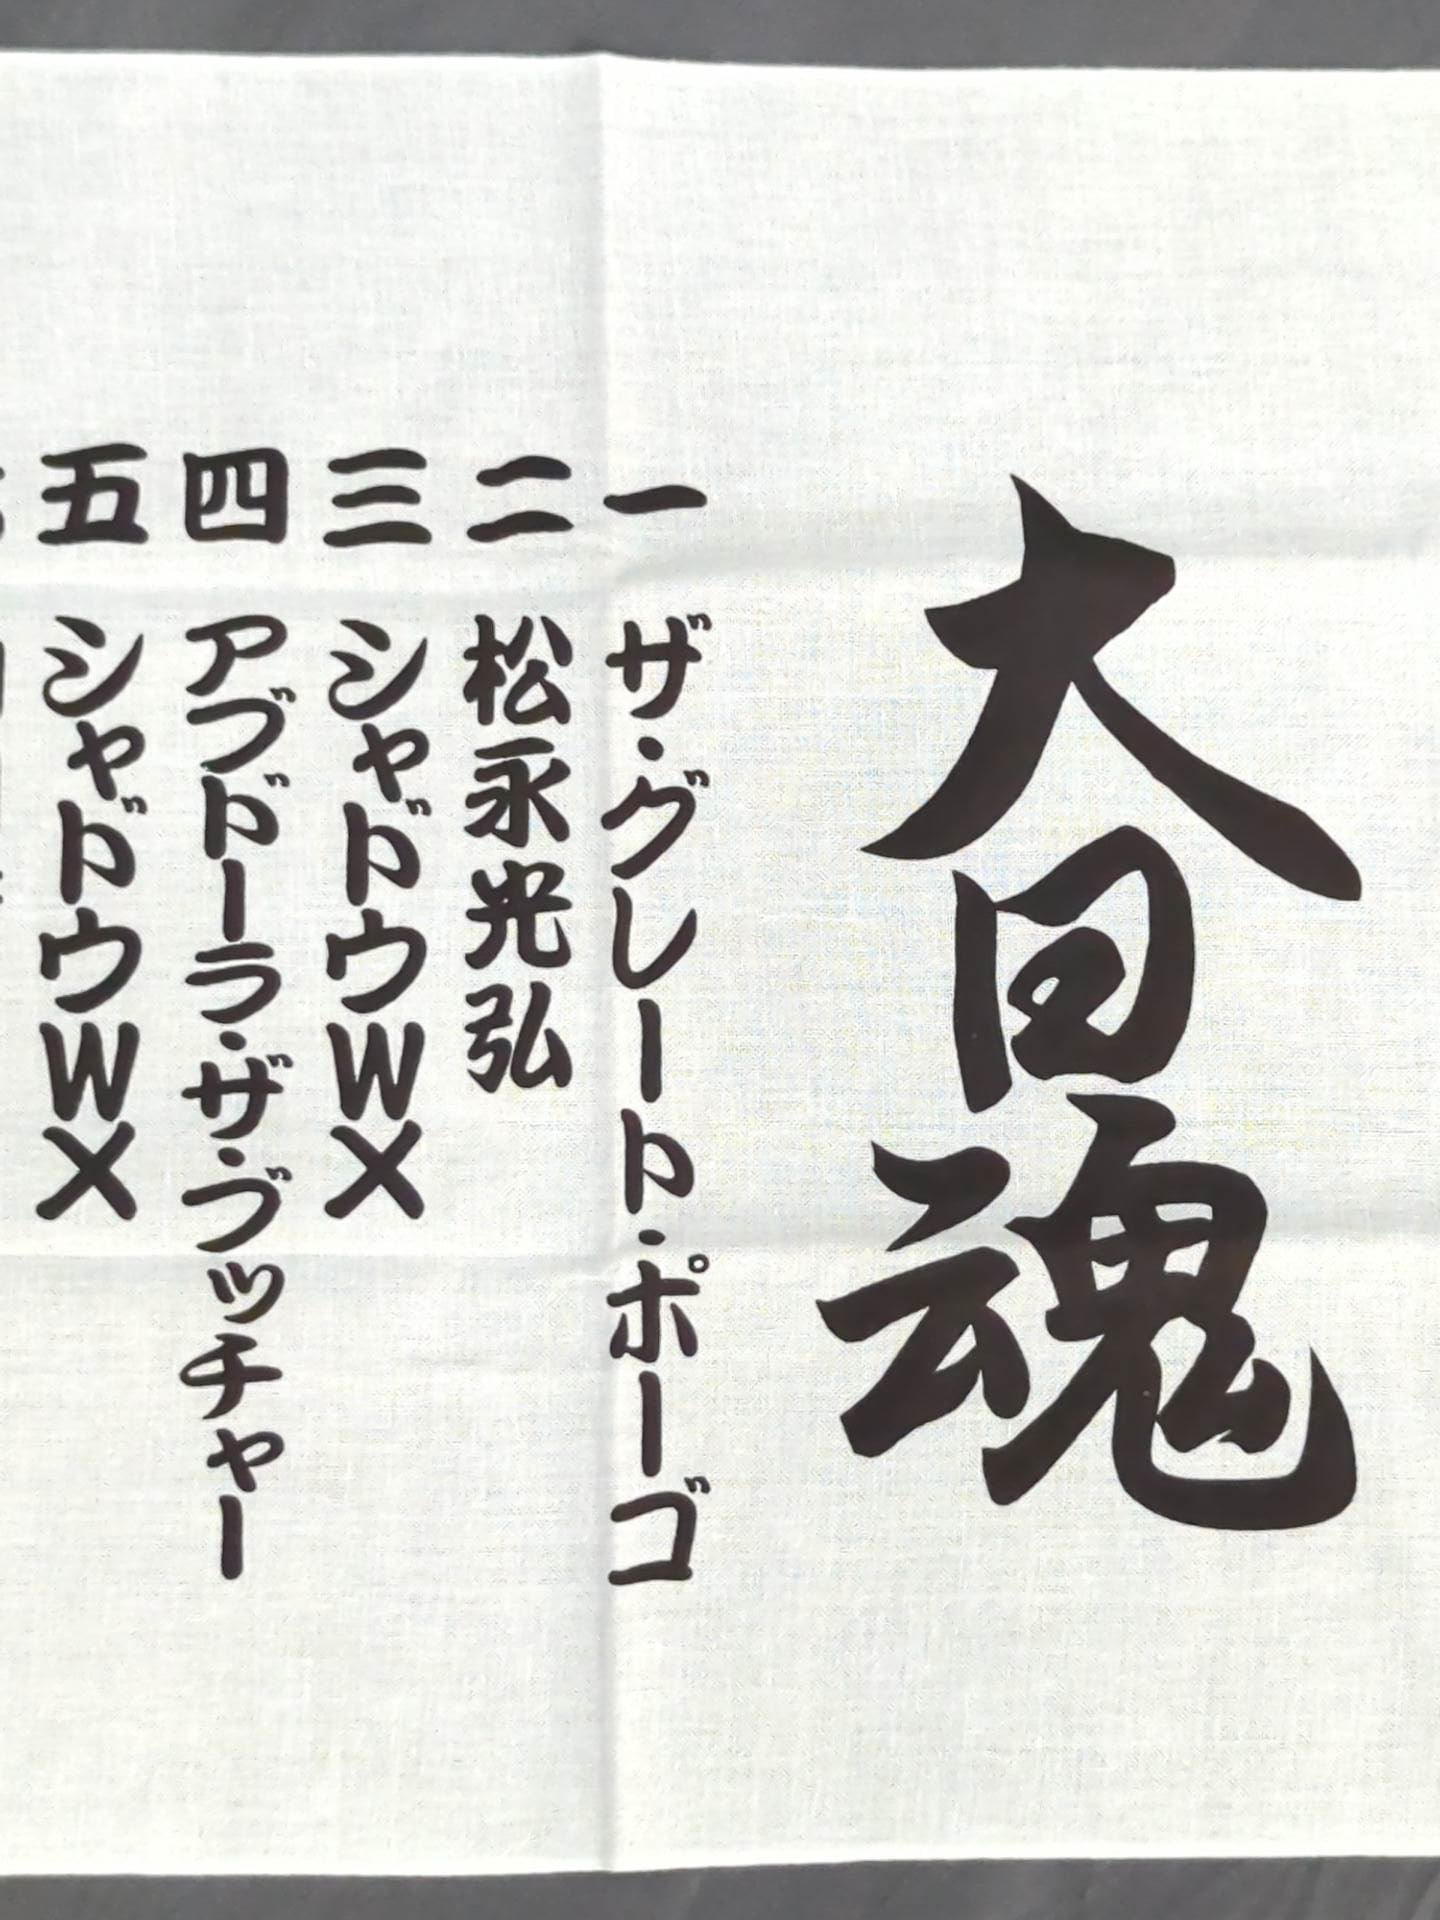 大日魂
一 ザ・グレート・ポーゴ
二 松永光弘
三 シャドウWX
四 アブドーラ・ザ・ブッチャー
五 シャドウWX